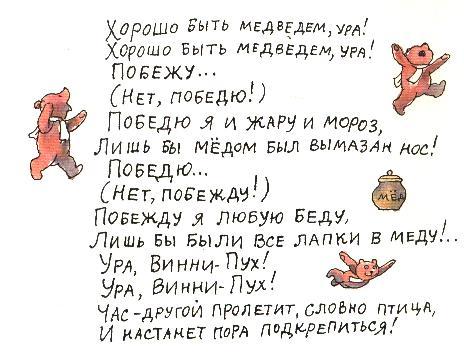 Хорошо быть медведем, ура!
Хорошо быть медведем, ура!
Побежу...
(Нет, победю!)
Победю я и жару и мороз,
Лишь бы мёдом был вымазан нос!
Победю...
(Нет, побежду!)
Побежду я любую беду,
Лишь бы были все лапки в меду!..
Ура, Винни-Пух!
Ура, Винни-Пух!
Час-другой пролетит, словно птица,
И настанет пора подкрепиться!
МЁД